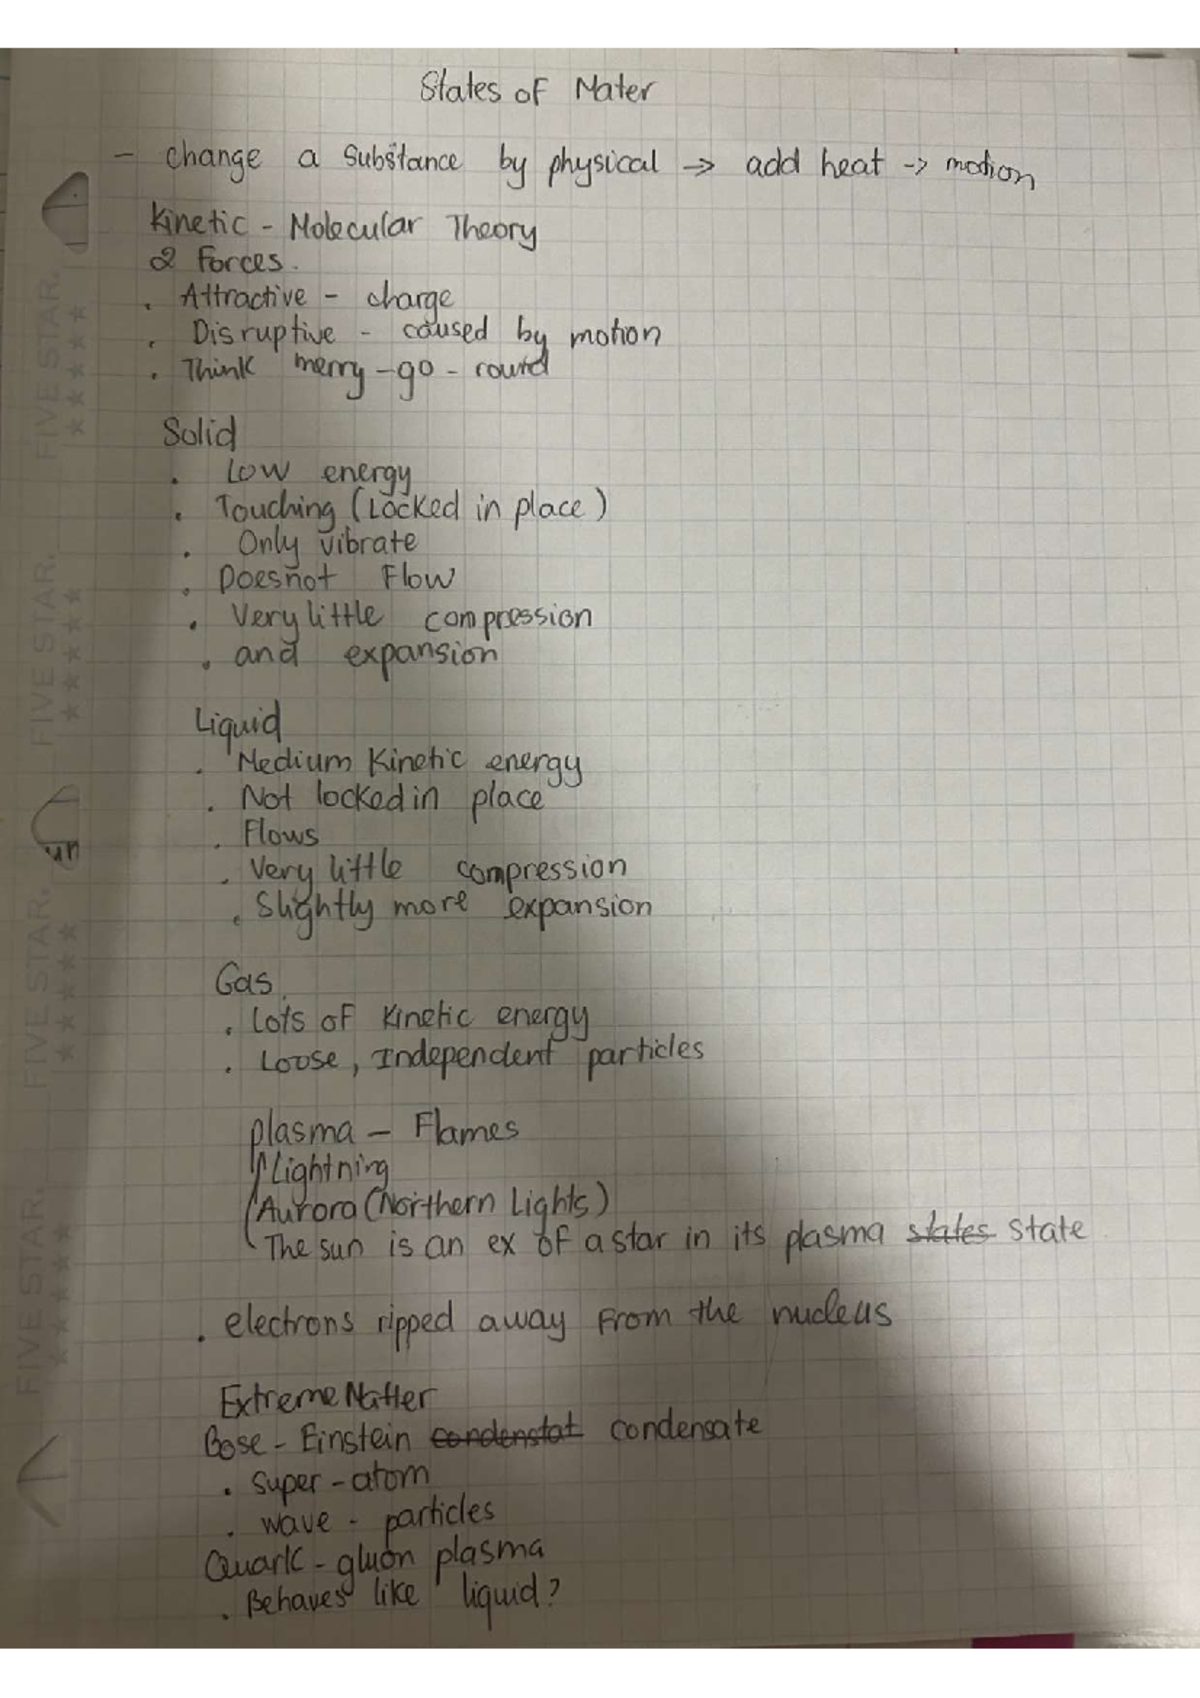 States of Mater
- change a substance by physical → add heat -> motion
Kinetic - Molecular Theory
2 Forces.
. Attractive - charge
. Disruptive - caused by motion
. Think merry-go-round
Solid
. Low energy
. Touching (Locked in place)
. Only vibrate
. Doesnot Flow
. Very little compression
. and expansion
Liquid
. Medium Kinetic energy
. Not locked in place
. Flows
. Very little compression
. Slightly more expansion
Gas
. Lots of Kinetic energy
. Loose, Independent particles
plasma - Flames
Lightning
Aurora (Northern Lights)
The sun is an ex of a star in its plasma states state
. electrons ripped away from the nucleus
Extreme Matter
Bose - Einstein condenstat condensate
. super-atom
. wave - particles
Quark - gluon plasma
. Behaves like liquid?
FIVE STAR.
FIVE STAR.
FIVE STAR.
FIVE STAR.